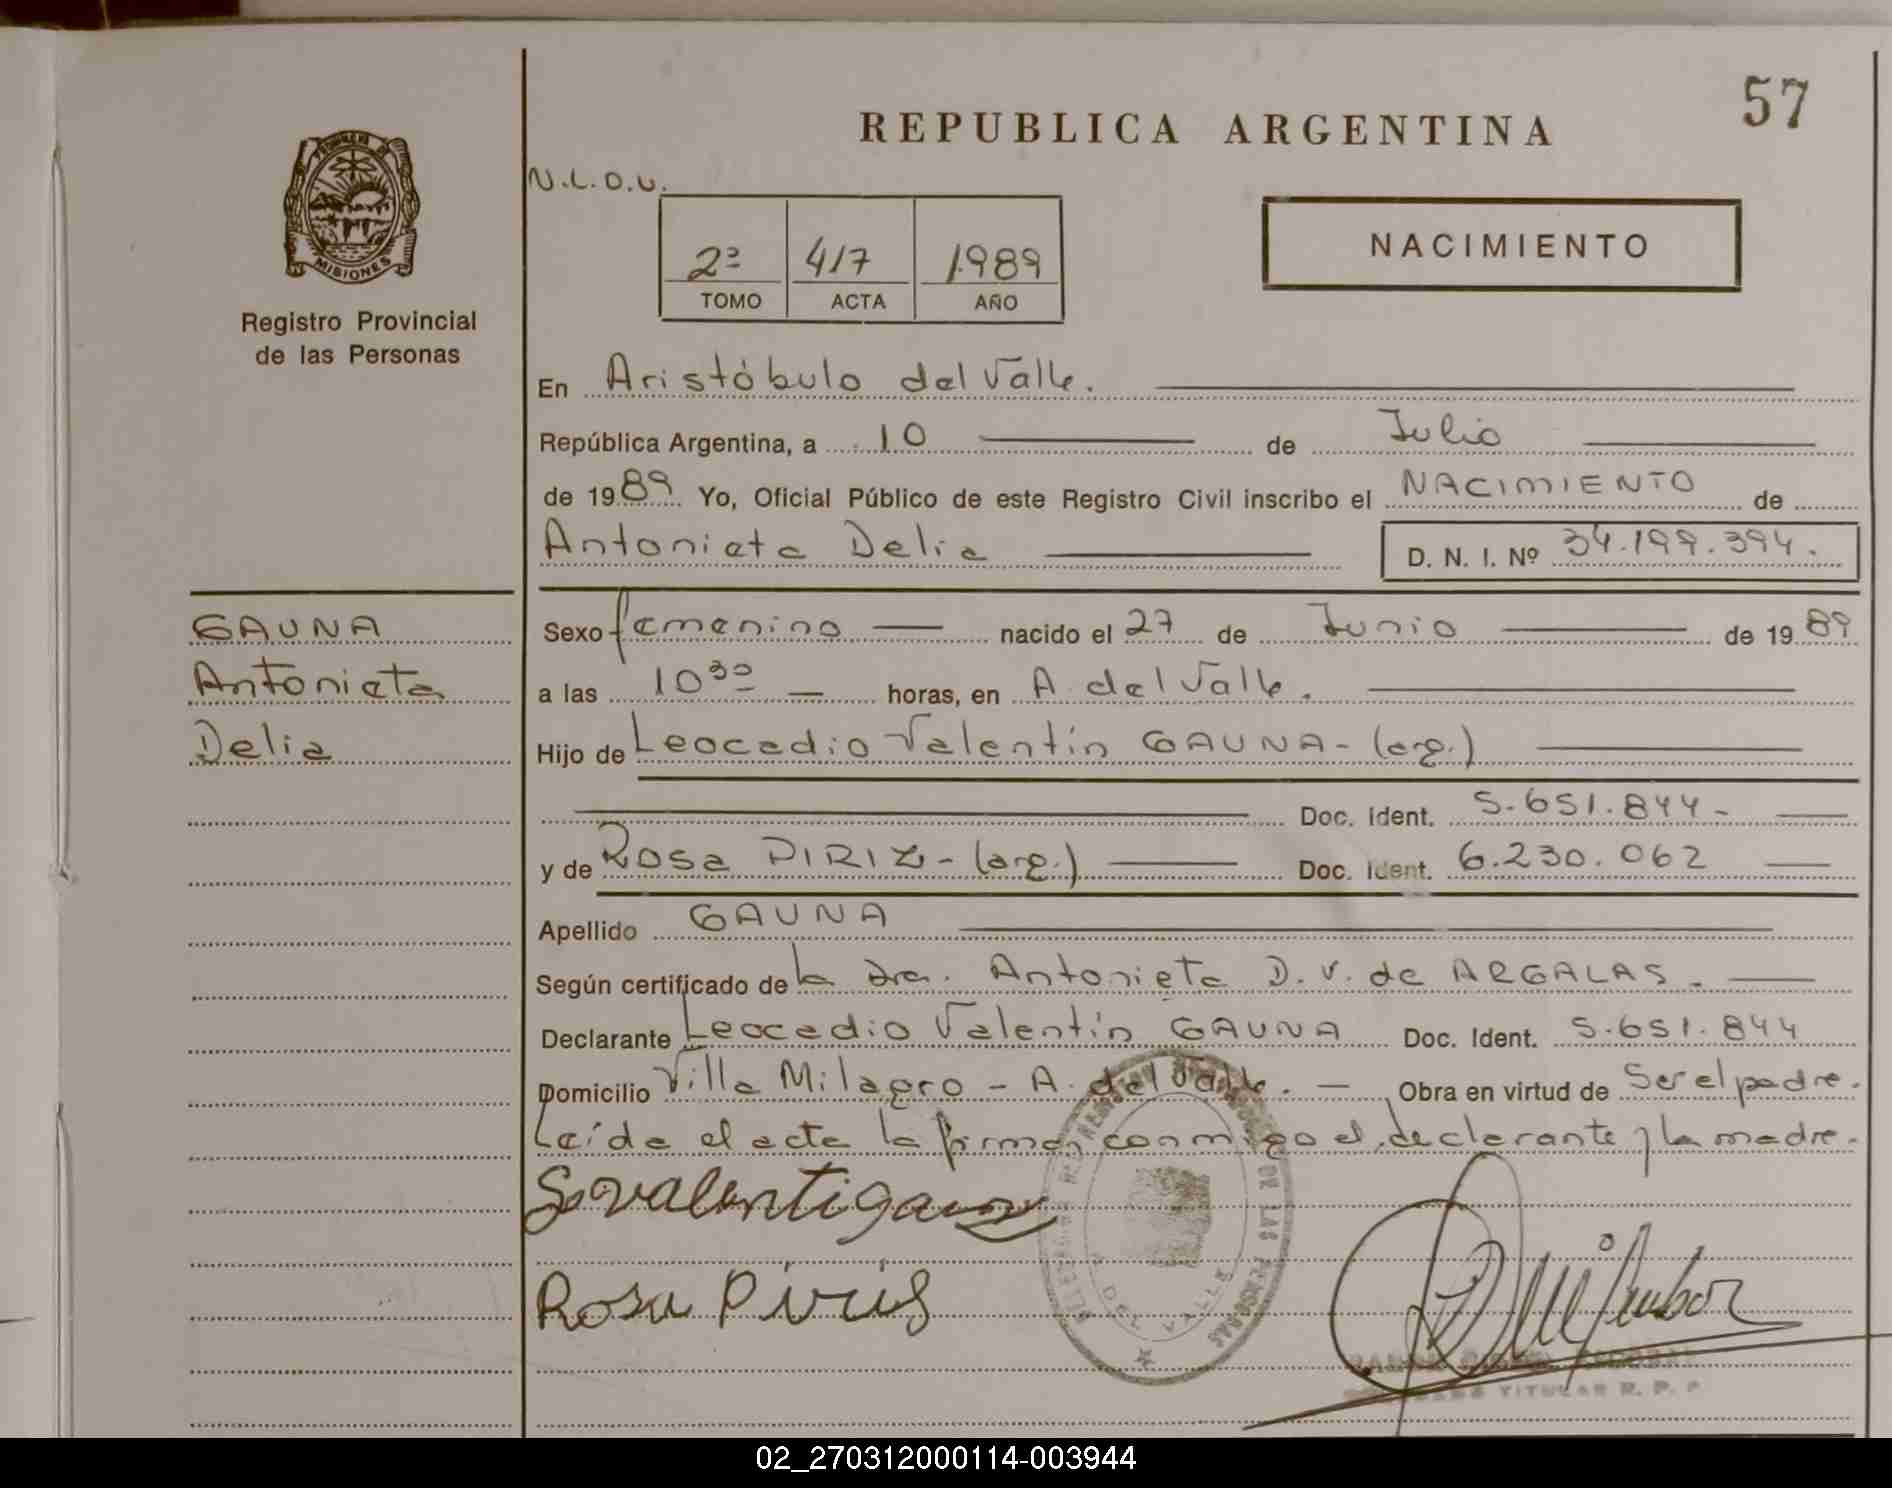 57
REPUBLICA ARGENTINA
PROVINCIA DE
MISIONES
Registro Provincial
de las Personas
N.L.O.U.
2º 417 1989
TOMO ACTA AÑO
NACIMIENTO
En Aristóbulo del Valle.
República Argentina, a 10 de Julio
de 1989 Yo, Oficial Público de este Registro Civil inscribo el NACIMIENTO de
Antonieta Delia D. N. I. Nº 34.199.394.
GAUNA
Antonieta
Delia
Sexo femenino nacido el 27 de Junio de 1989
a las 10 30 horas, en A. del Valle.
Hijo de Leocadio Valentín GAUNA - (arg.)
Doc. Ident. 5.651.844-
y de Rosa PIRIZ - (arg.) Doc. Ident. 6.230.062
Apellido GAUNA
Según certificado de la Dra. Antonieta D. V. de ARGALAS.
Declarante Leocadio Valentín GAUNA Doc. Ident. 5.651.844
Domicilio Villa Milagro - A. del Valle. - Obra en virtud de Ser el padre.
Leída el acta la firman conmigo el declarante y la madre.
Rosa Piris
DE LAS PERSONAS
DEL VALLE
TITULAR R. P. P
02_270312000114-003944